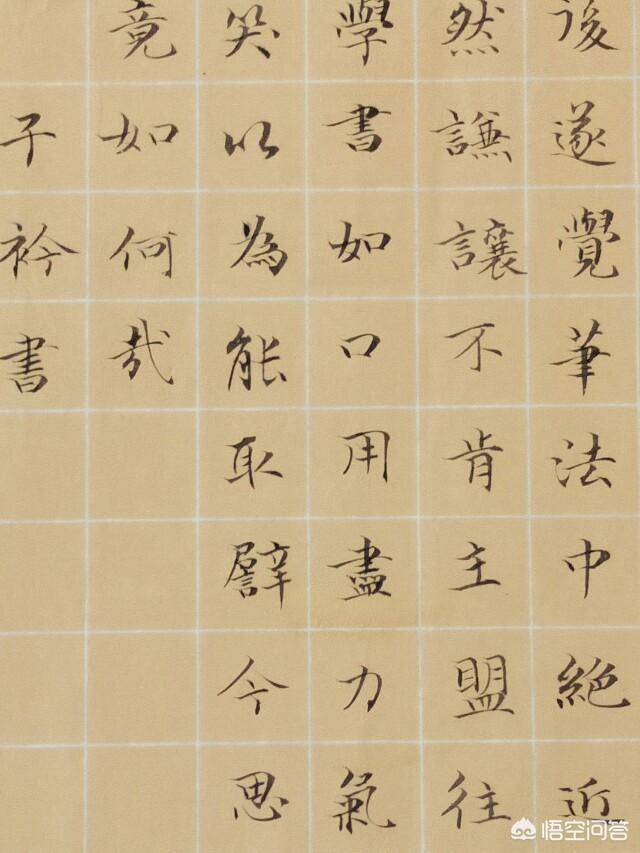 後遂覺筆法中絕近
然謙讓不肯主盟往
學書如口用盡力氣
笑以為能取譬今思
竟如何哉
子衿書
悟空问答